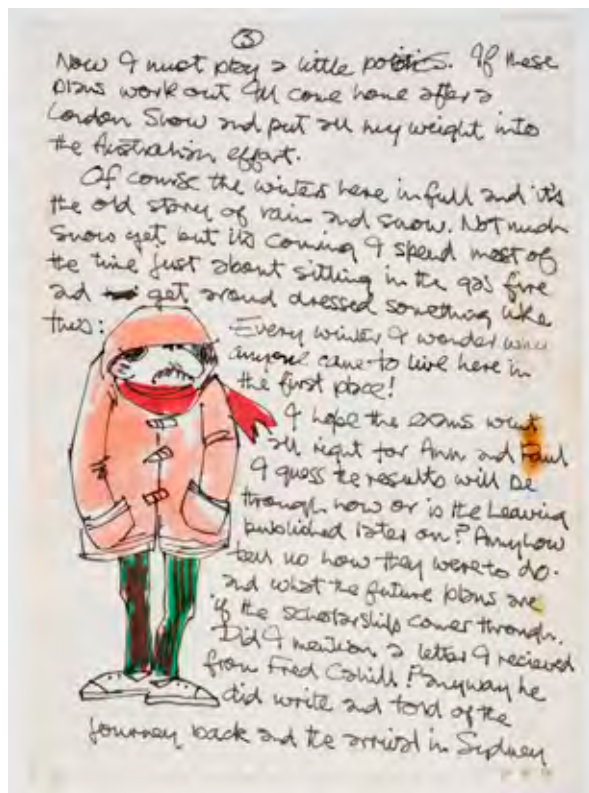 3
Now I must play a little politics. If these
plans work out I'll come home after a
London Show and put all my weight into
the Australian effort.
Of course the winters here in full and it's
the old story of rain and snow. Not much
snow yet but its coming I spend most of
the time just about sitting in the gas fire
and get around dressed something like
this:
Every winter I wonder
anyone came to live here in
the first place!
I hope the exams went
all right for Ann and Paul
I guess the results will be
through now or is the Leaving
published later on? Anyhow
tell us how they were to do.
and what the future plans are
if the scholarship comes through.
Did I mention a letter I recieved
from Fred Cahill? anyway he
did write and told of the
journey back and the arrival in Sydney